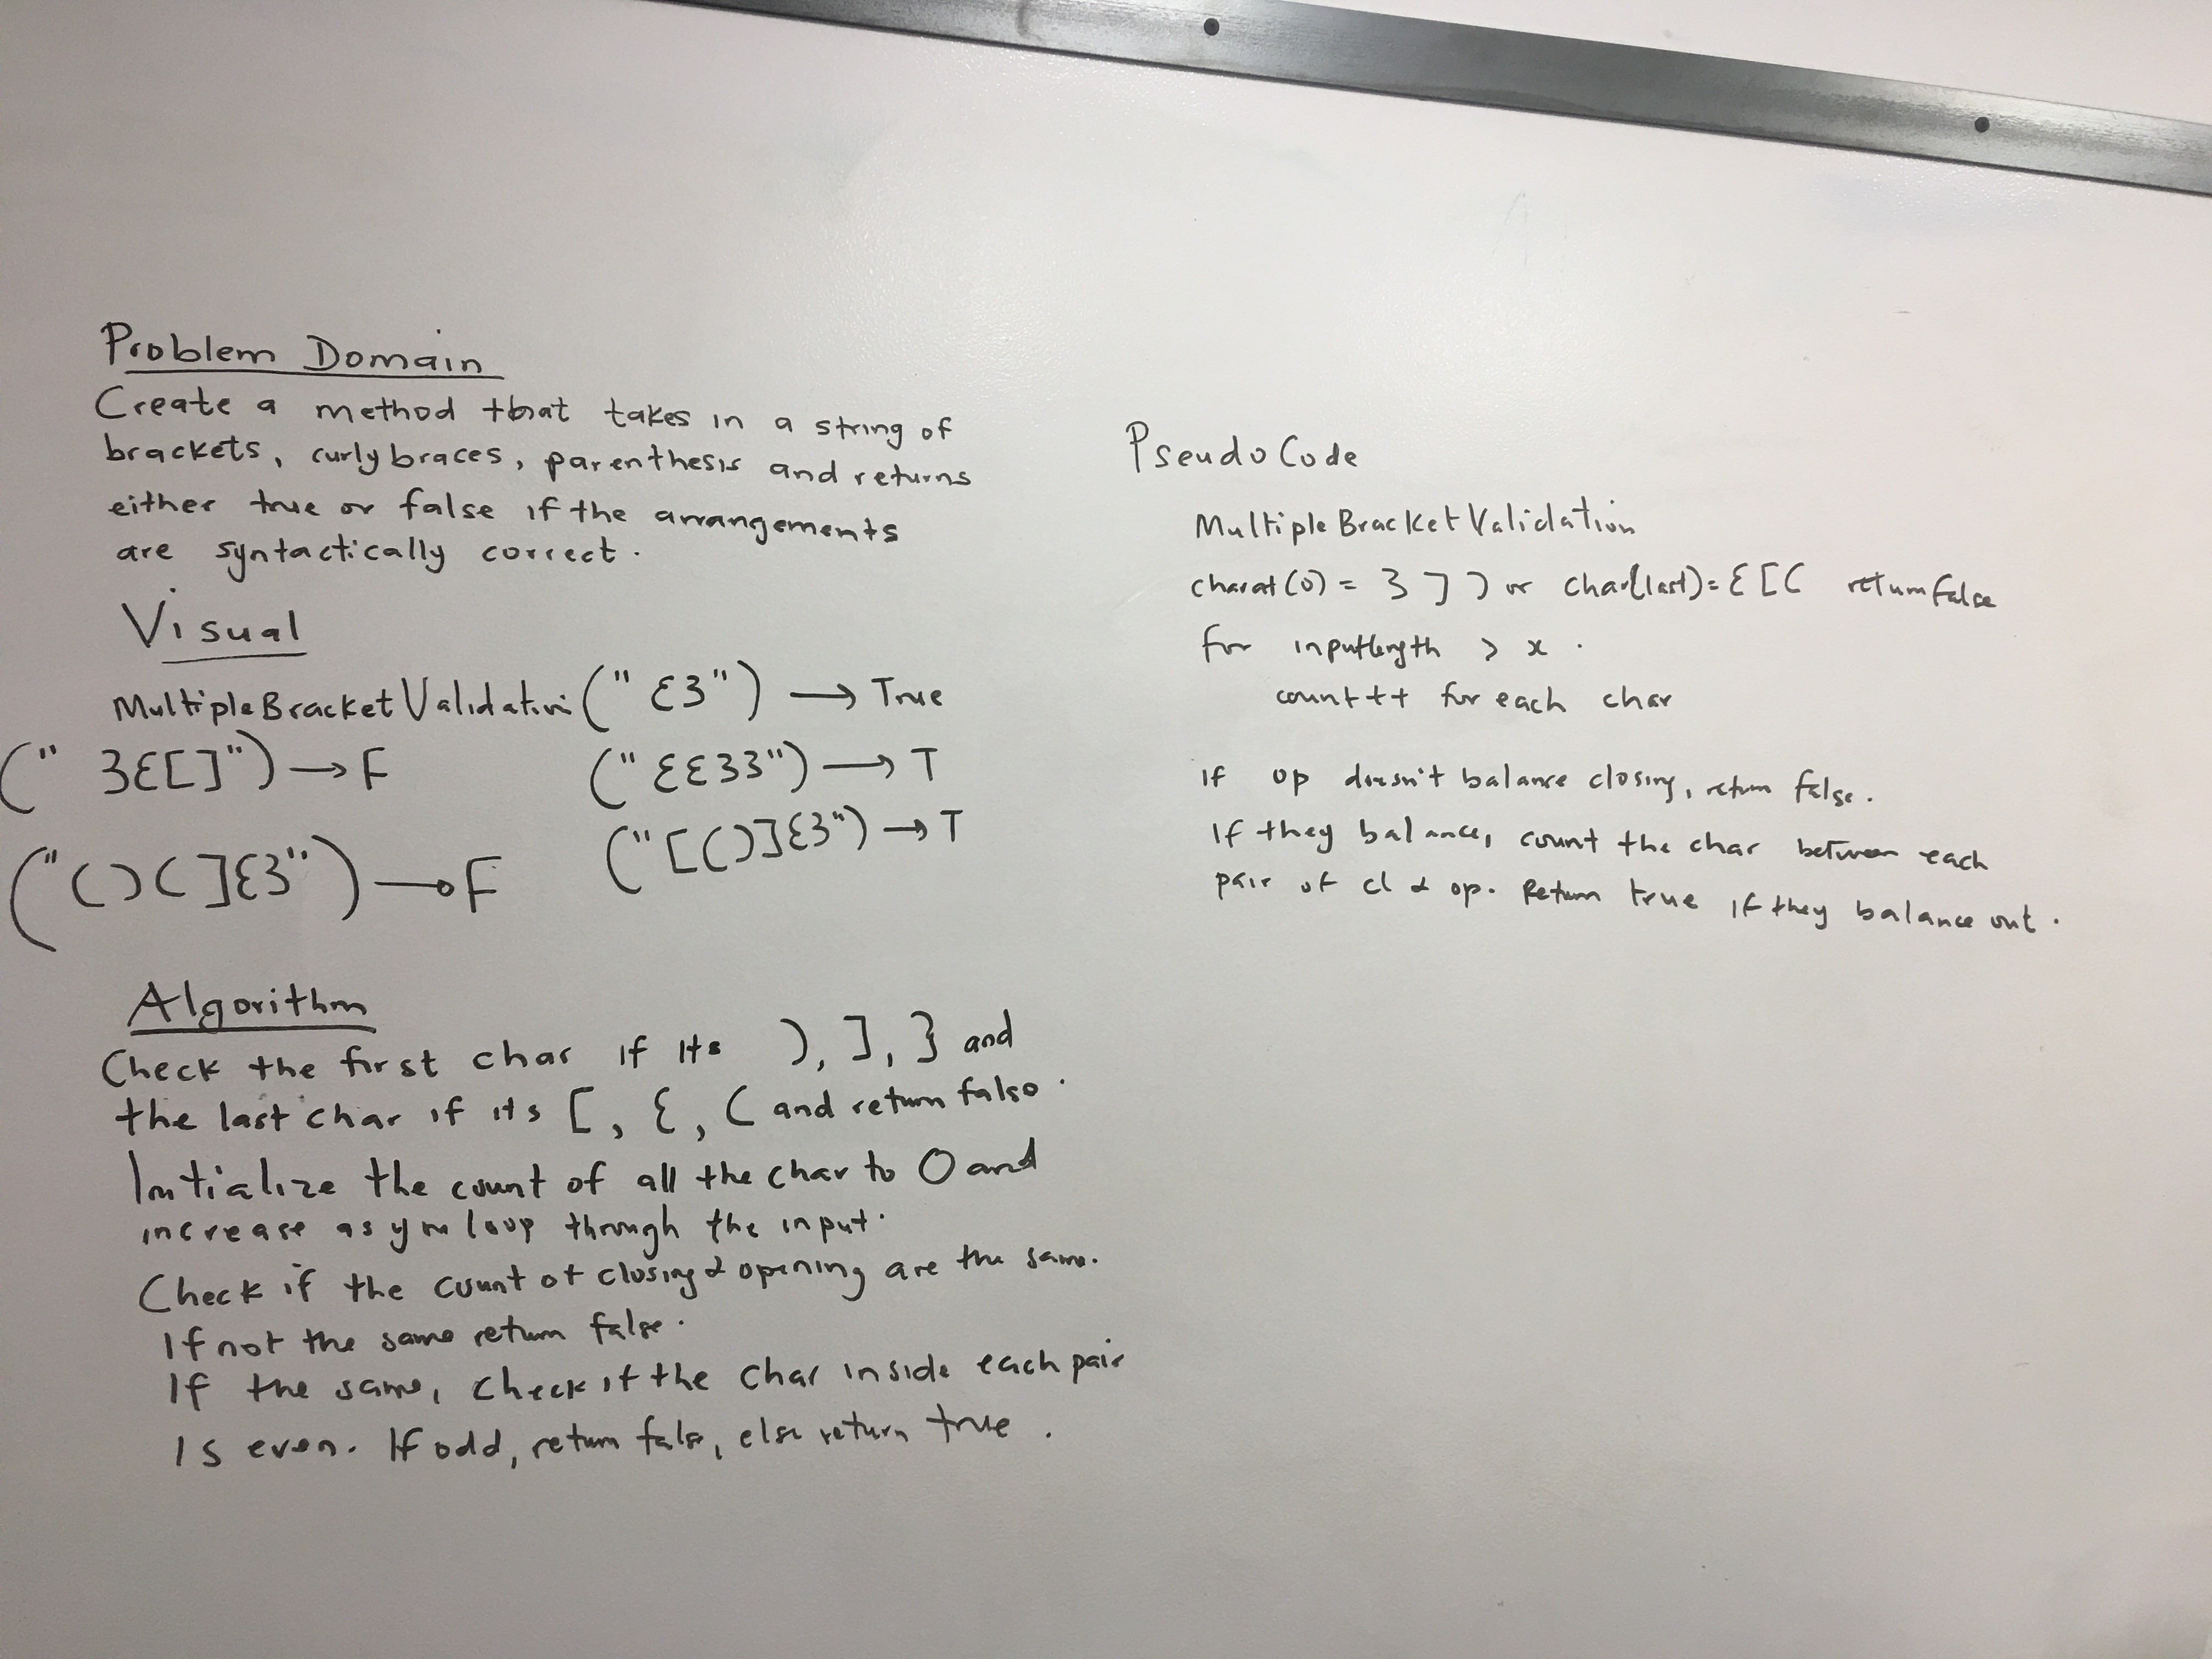 Problem Domain
Create a method that takes in a string of
brackets, curly braces, parenthesis and returns
either true or false if the arrangements
are syntactically correct.
Visual
MultipleBracketValidation ("{}") → True
("}{[]") → F
("{{}}") → T
("()(]{}") → F
("[()]{}") → T
Algorithm
Check the first char if its ), ], } and
the last char if its [, {, ( and return false.
Initialize the count of all the char to 0 and
increase as you loop through the input.
Check if the count of closing & opening are the same.
If not the same return false.
If the same, check if the char inside each pair
is even. If odd, return false, else return true.
PseudoCode
MultipleBracketValidation
charat(0) = } ] ) or char(last) = { [ ( return false
for inputlength > x.
count++ for each char
If op doesn't balance closing, return false.
If they balance, count the char between each
pair of cl & op. Return true if they balance out.